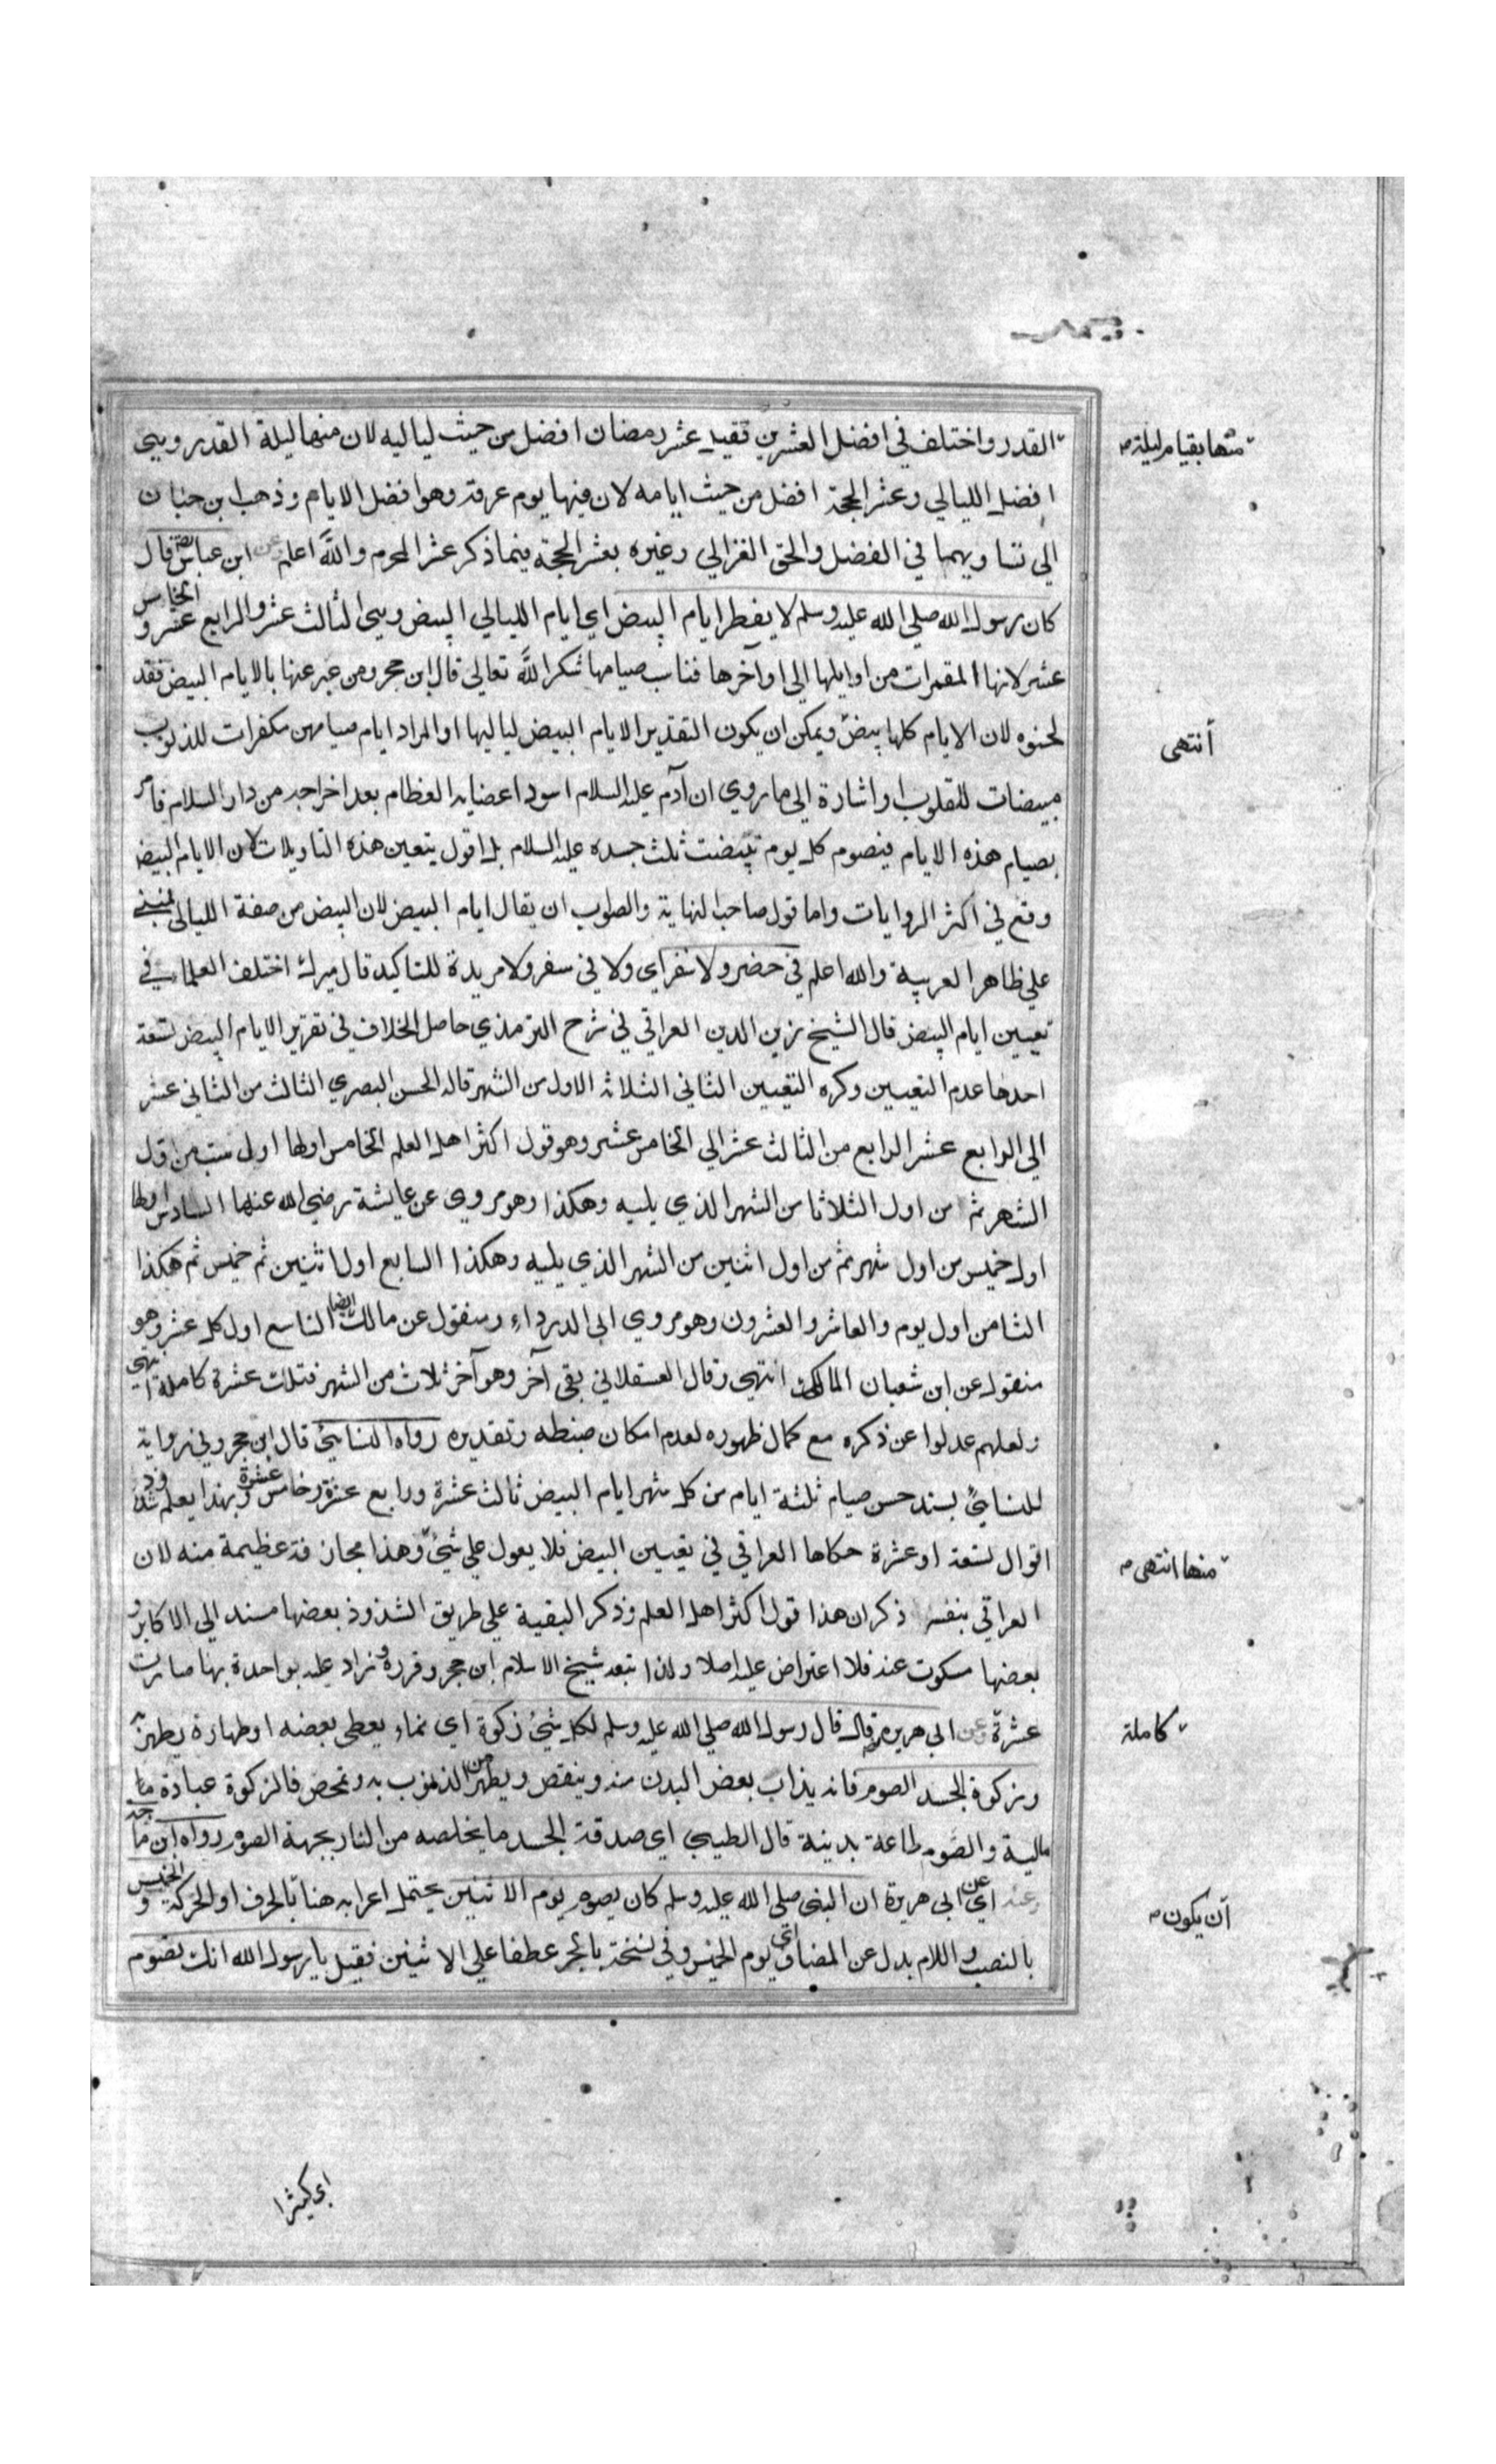 القدر واختلف في افضل العشرين فقيل عشر رمضان افضل من حيث لياليه لان منها ليلة القدر وهي
منها بقيام ليلة
افضل الليالي وعشر الحجة افضل من حيث ايامه لان فيها يوم عرفة وهو افضل الايام وذهب ابن حبان
الي تساويهما في الفضل والحق الغزالي وغيره بعشر الحجة فيما ذكر عشر المحرم والله اعلم عن ابن عباس قال
كان رسول الله صلي الله عليه وسلم لا يفطر ايام البيض اي ايام الليالي البيض وهي الثالث عشر والرابع عشر والخامس
عشر لانها المقمرات من اوايلها الي اواخرها فناسب صيامها شكرا لله تعالي قال ابن حجر ومن عبر عنها بالايام البيض فقد
لحنوه لان الايام كلها بيض ويمكن ان يكون التقدير الايام البيض لياليها او المراد ايام صيامهن مكفرات للذنوب
أنتهى
مبيضات للقلوب او اشارة الي ما روي ان آدم عليه السلام اسود اعضايه العظام بعد اخراجه من دار السلام فامر
بصيام هذه الايام فبصوم كل يوم تبيضت ثلث جسده عليه السلام بل اقول يتعين هذه التاويلات لان الايام البيض
وقع في اكثر الروايات واما قول صاحب النهاية والصواب ان يقال ايام البيض لان البيض من صفة الليالي فمبني
علي ظاهر العربية والله اعلم في حضر ولا سفر اي ولا في سفر ولا مزيدة للتاكيد قال ميرك اختلف العلماء في
تعيين ايام البيض قال الشيخ زين الدين العراقي في شرح الترمذي حاصل الخلاف في تقرير الايام البيض تسعة
احدها عدم التعيين وكره التعيين الثاني الثلاثة الاول من الشهر قاله الحسن البصري الثالث من الثاني عشر
الي الرابع عشر الرابع من الثالث عشر الي الخامس عشر وهو قول اكثر اهل العلم الخامس اولها اول سبت من اول
الشهر ثم من اول الثلاثا من الشهر الذي يليه وهكذا وهو مروي عن عايشة رضي الله عنها السادس اولها
اول خميس من اول شهر ثم من اول اثنين من الشهر الذي يليه وهكذا السابع اول اثنين ثم خميس ثم هكذا
الثامن اول يوم والعاشر والعشرون وهو مروي ابي الدرداء ومنقول عن مالك ايضا التاسع اول كل عشر وهو
منقول عن ابن شعبان المالكي انتهي وقال العسقلاني بقي آخر وهو آخر ثلاث من الشهر فتلك عشرة كاملة انتهي
ولعلهم عدلوا عن ذكره مع كمال ظهوره لعدم امكان ضبطه وتقديره رواه النسايئ قال ابن حجر وفي رواية
للنسايئ بسند حسن صيام ثلثة ايام من كل شهر ايام البيض ثالث عشرة ورابع عشرة وخامس عشرة وبهذا يعلم شذوذ
اقوال تسعة او عشرة حكاها العراقي في تعيين البيض فلا يعول علي شئ وهذا مجازفة عظيمة منه لان
منها انتهى
العراقي بنفسه ذكر ان هذا قول اكثر اهل العلم وذكر البقية علي طريق الشذوذ بعضها مسند الي الاكابر و
بعضها مسكوت عنه فلا اعتراض عليه اصلا ولذا تبعه شيخ الاسلام ابن حجر وقرره وزاد عليه بواحدة بها صارت
عشرة وعن ابي هريرة قال قال رسول الله صلي الله عليه وسلم لكل شئ زكوة اي نماء يعطي بعضه او طهارة يطهر به
كاملة
وزكوة الجسد الصوم فانه يذاب بعض البدن منه وينقص ويطهر من الذنوب به وتمحض فالزكوة عبادة ما
مالية والصوم طاعة بدينة قال الطيبي اي صدقة الجسد ما يخلصه من النار بجهة الصوم رواه ابن ماجه
وعنه اي عن ابي هريرة ان النبي صلي الله عليه وسلم كان يصوم يوم الاثنين يحتمل اعرابه هنا بالحرف او الحركة والخميس
أن يكون
بالنصب واللام بدل عن المضاف اي يوم الخميس وفي نسخة بالجر عطفا علي الاثنين فقيل يا رسول الله انك تصوم
اي كيثرا